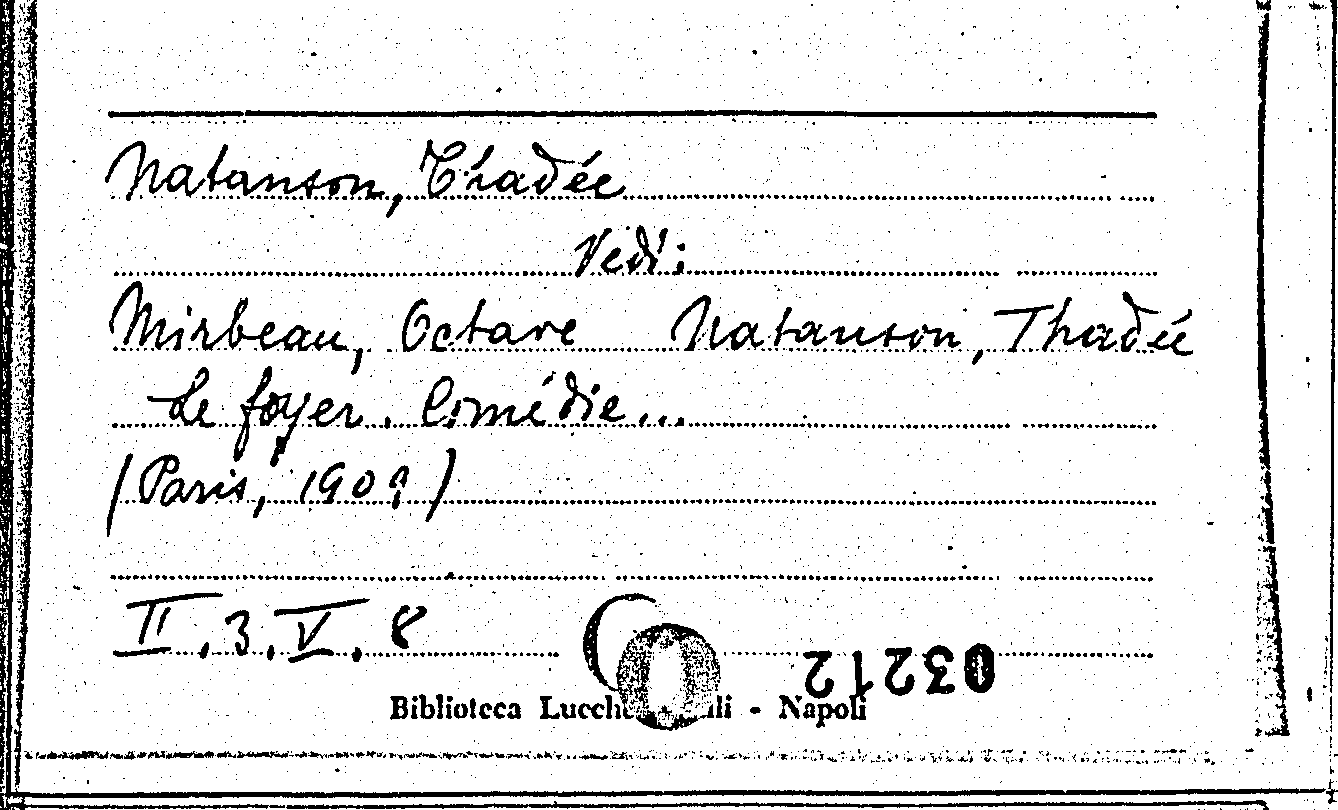 Natanson, Thadée
Vedi:
Mirbeau, Octave Natanson, Thadée
Le foyer. Comédie...
(Paris, 1909)
II.3.V.8
03212
Biblioteca - Napoli